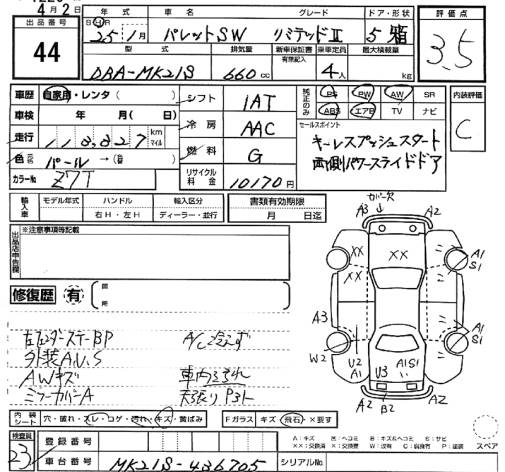 4月2日
出品番号
44
年式 車名 グレード ドア・形状
H 25年 1月 パレットSW リミテッドⅡ 5 箱
型式 排気量 新車保証書 乗車定員 最大積載量
有無記入
DBA-MK21S 660cc 4人 kg
評価点
3.5
内装評価
C
車歴 自家用・レンタ( )
車検 年 月( 日)
走行 118,827 km マイル
色 パール →( )
カラーNo Z7T
シフト IAT
冷房 AAC
燃料 G
リサイクル料金 10170円
純正のみ PS PW AW SR
ABS エアB TV ナビ
セールスポイント
キーレスプッシュスタート
両側パワースライドドア
輸入車 モデル年式 ハンドル 輸入区分
右H・左H ディーラー・並行
書類有効期限
月 日迄
出品店申告欄
※注意事項等記載
修復歴 有
箇所
左フェンダーステーBP A/C冷えず
外装A.U.S
AWキズ 車内汚れ
ミラーカバーA 天張りPヨト
カバー欠
A3 A2
XX XX
A1
S1
A3
A1
S1
W2 U2 A1 U3 A1S1
A2 B2 A2
内装シート 穴・破れ・スレ・コゲ・汚れ・キズ・黄ばみ
Fガラス キズ・飛石・×要す
検査員
23
登録番号
車台番号 MK21S-436705
シリアルNo
A:キズ E:ヘコミ B:キズ&ヘコミ S:サビ
××:交換済 ×:要交換 W:波有 C:腐食有 P:塗装
スペア